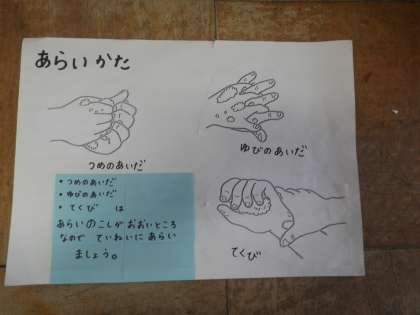 あらいかた
つめのあいだ
ゆびのあいだ
・つめのあいだ
・ゆびのあいだ
・てくび は
あらいのこしが おおいところ
なので ていねいに あらい
ましょう。
てくび